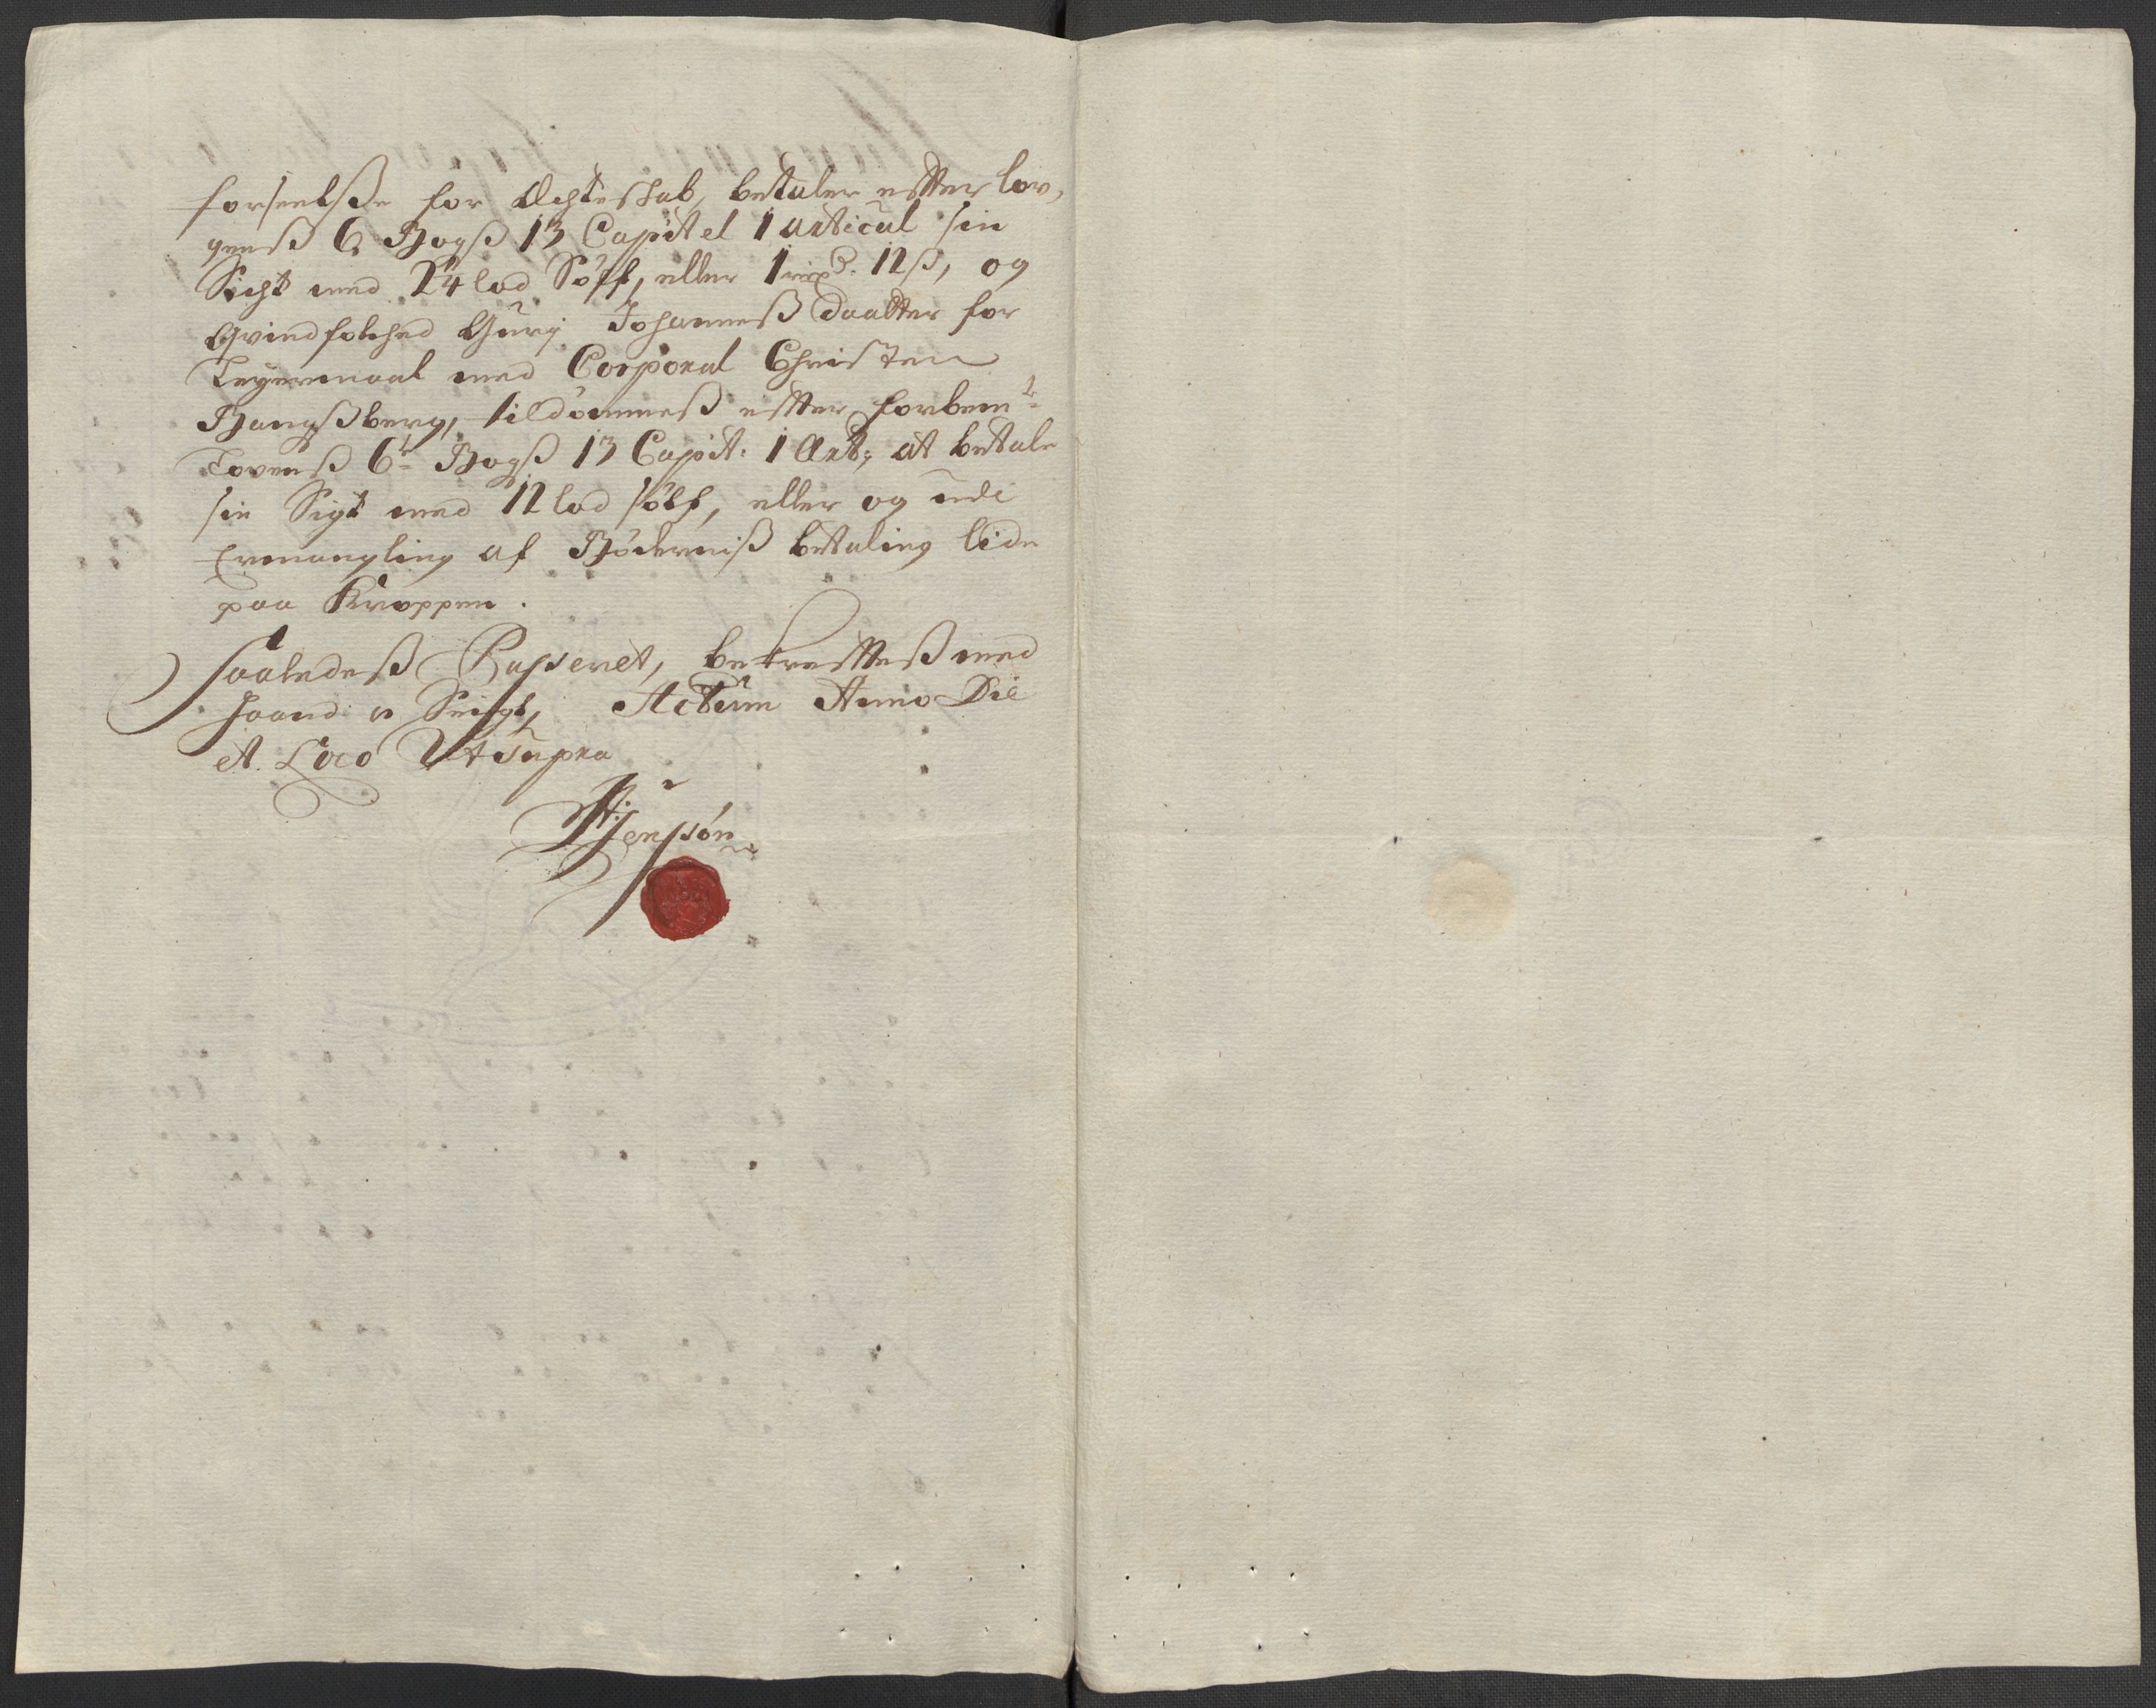 forseelsße for Ächteskab, betaler effter lov,
genß 6 Bogß 13 Capitel 1 articul sin
Sicht med 24 lod Sølf, eller 12 ß, og
Qvindfolched Gurj Johanneß daatter for
Leyermaal med Corporal Christen
Bangßberg, tildømmeß effter forbemte
Lovenß 6te Bogß 13 Capit: 1 Art: at betale
sin Sigt med 12 lod sølf, eller og udi
Ermangling af Bøderniß betaling lide
paa Kroppen.
Saaledeß Passeret, bekreffteß med
Haand u Seigl, Actum Anno Die
et Loco Ut supra
Jenssøn